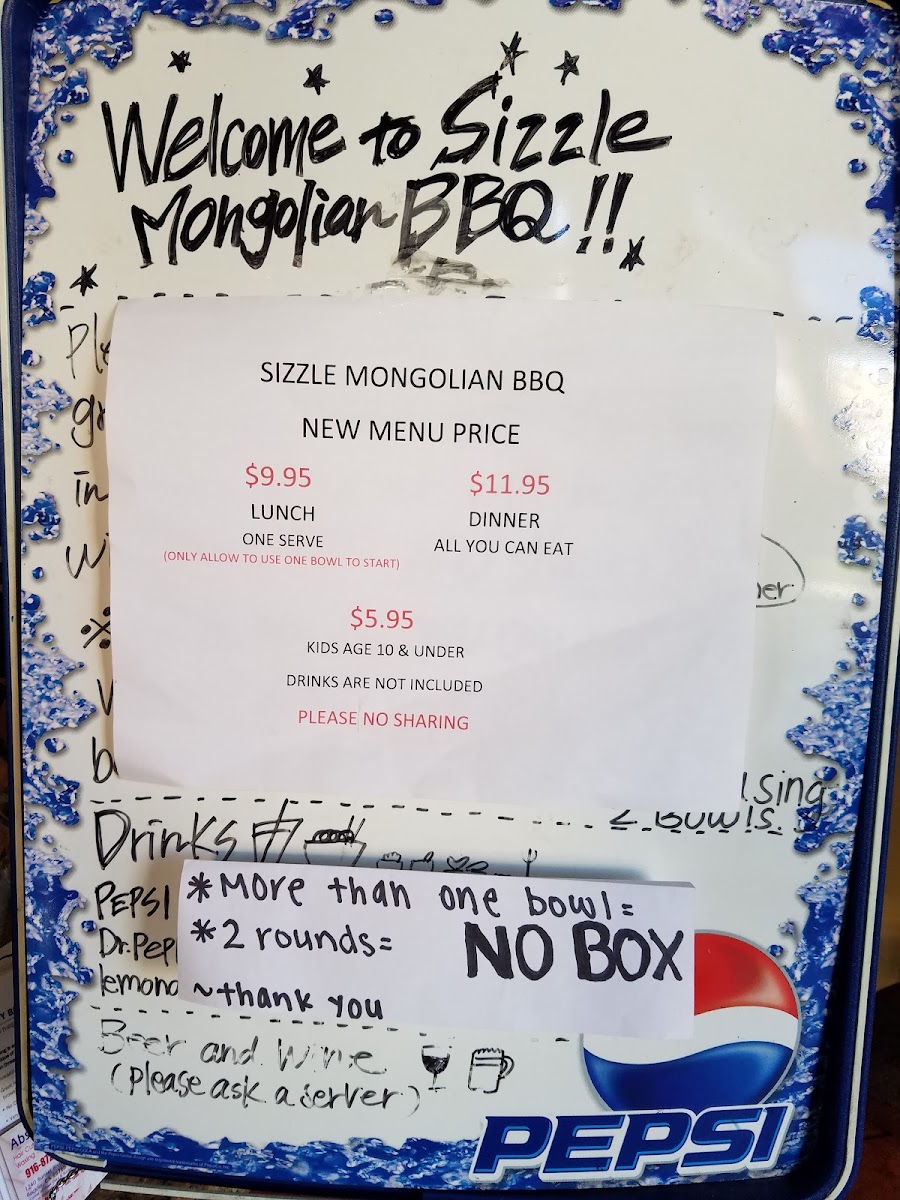 Welcome to Sizzle
Mongolian BBQ!!
SIZZLE MONGOLIAN BBQ
NEW MENU PRICE
$9.95
LUNCH
ONE SERVE
(ONLY ALLOW TO USE ONE BOWL TO START)
$11.95
DINNER
ALL YOU CAN EAT
$5.95
KIDS AGE 10 & UNDER
DRINKS ARE NOT INCLUDED
PLEASE NO SHARING
2 Bowls.
Drinks
PEPSI
*More than one bowl=
*2 rounds=
NO BOX
~thank you
Beer and Wine
(please ask a server)
PEPSI